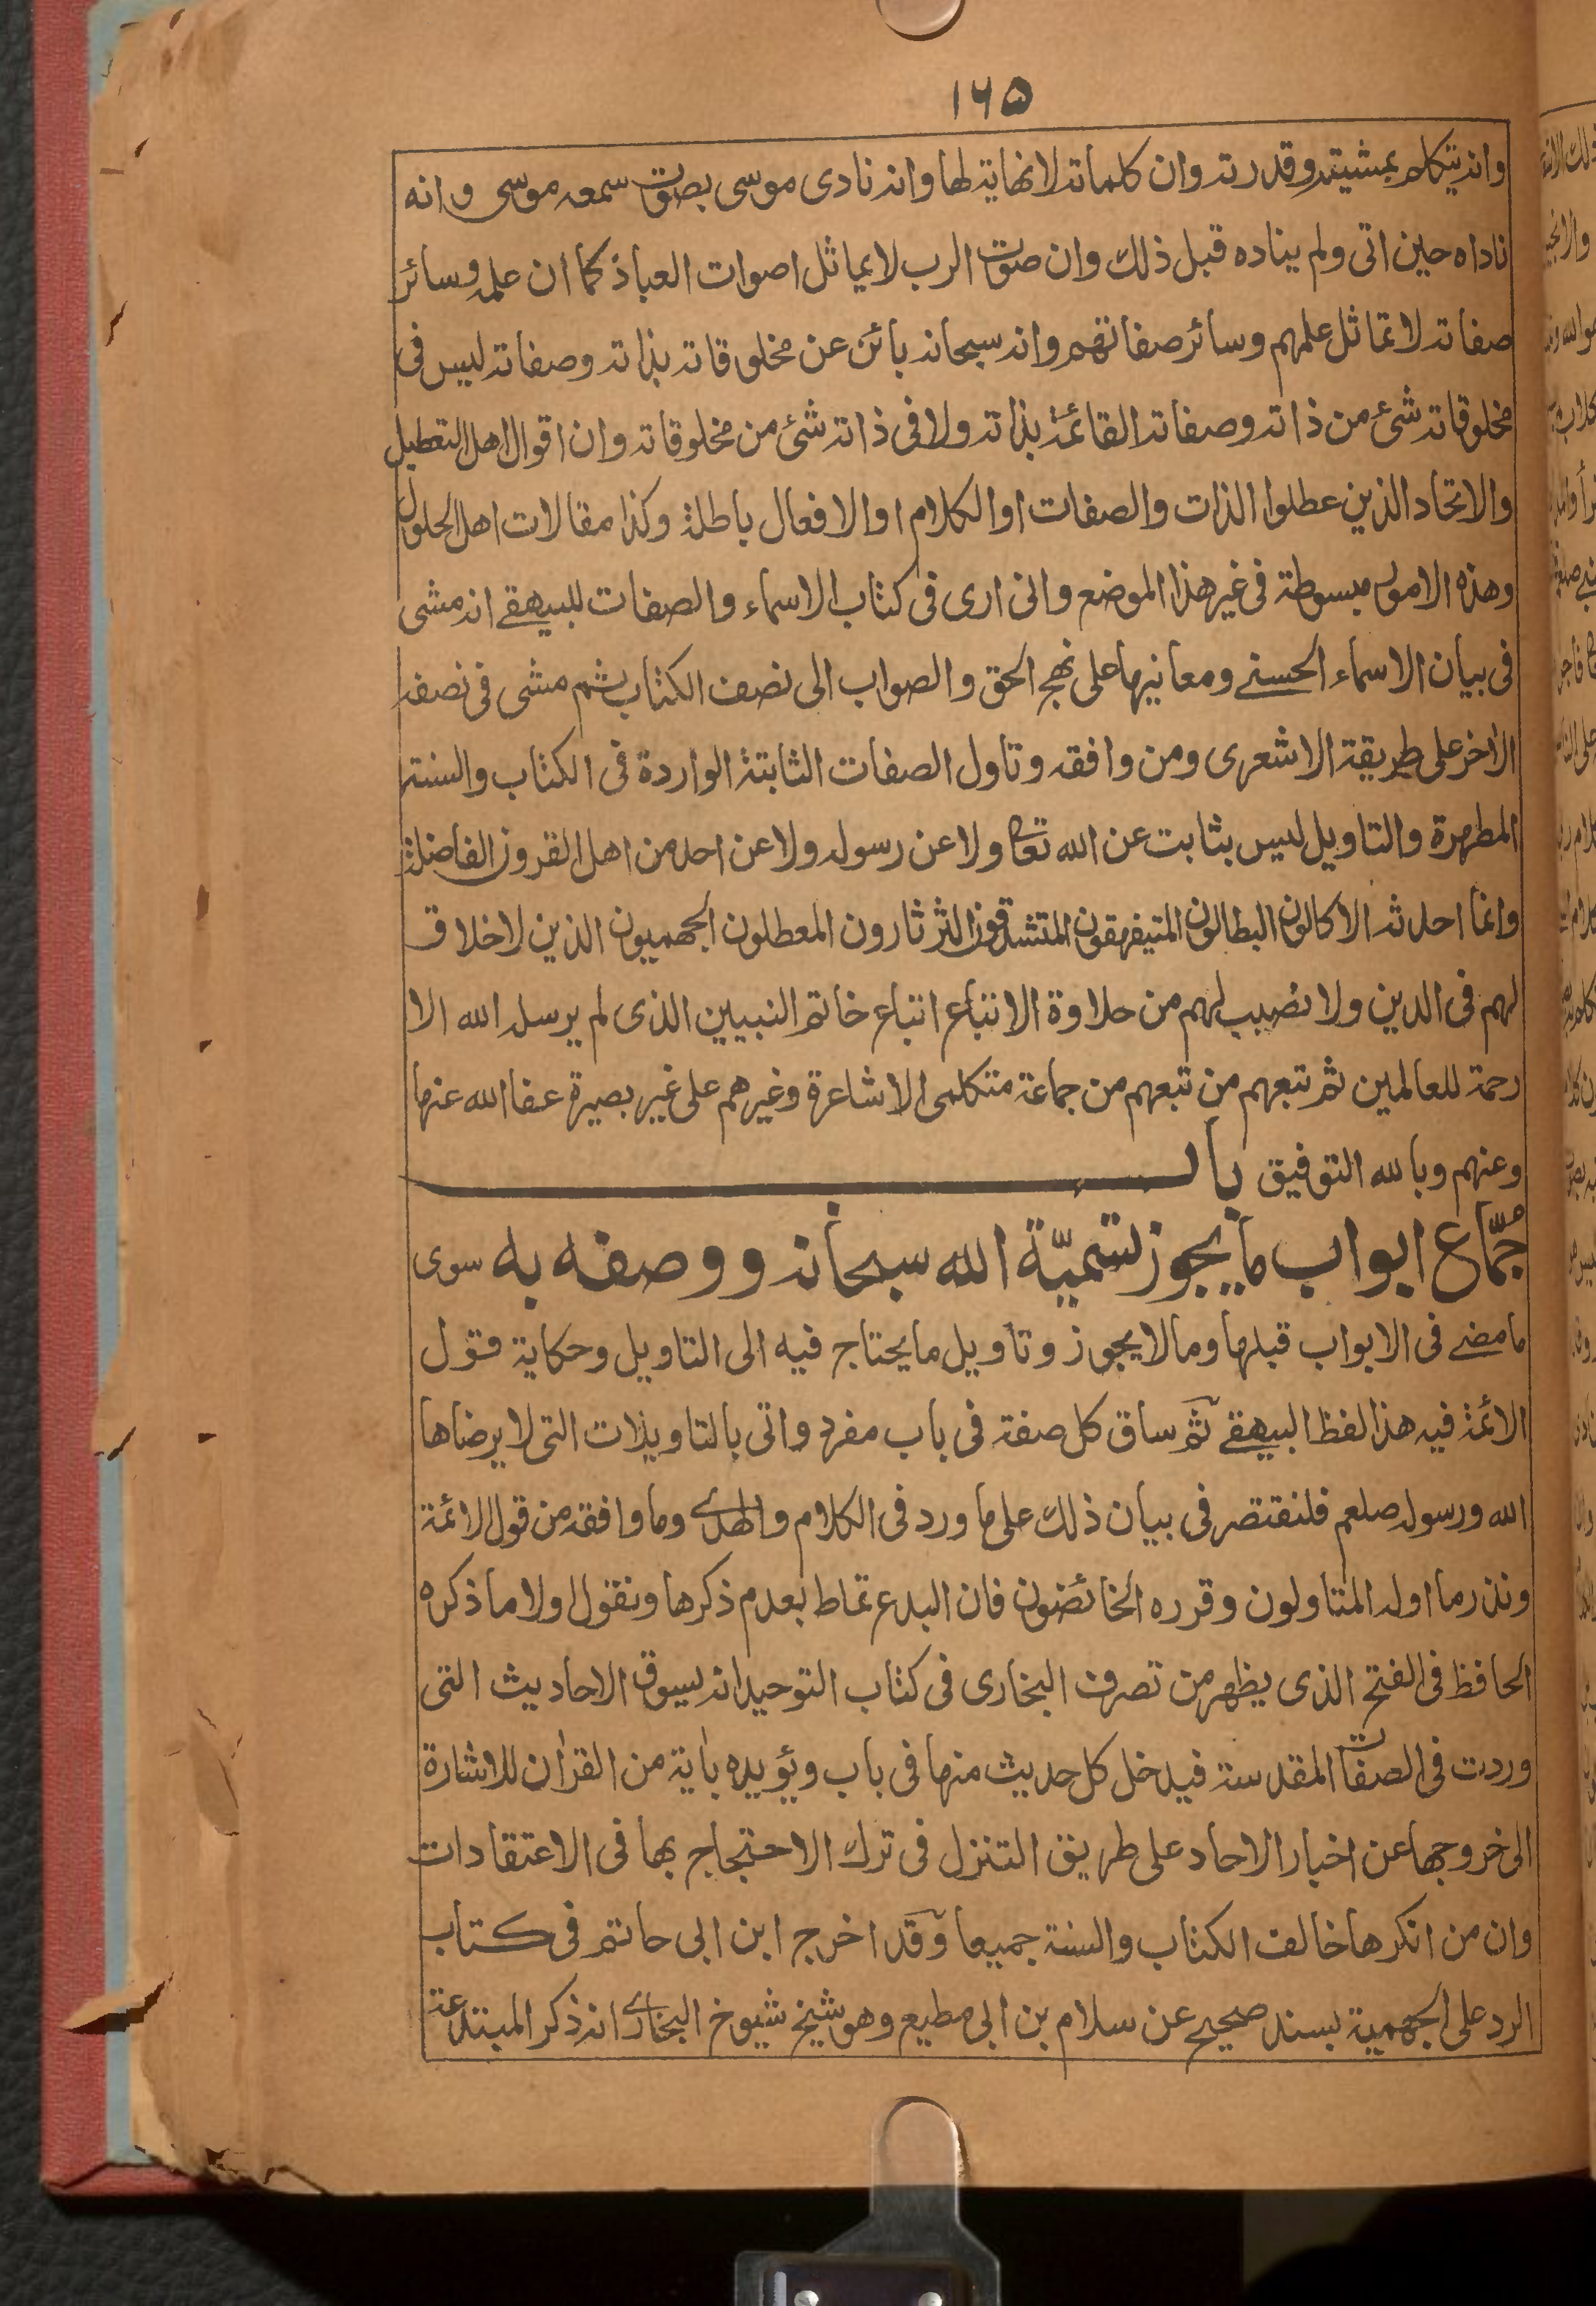 ١٦٥
وانه يتكلم بمشيته وقدرته وان كلماته لا نهاية لها وانه نادى موسى بصوت سمعه موسى وانه
ناداه حين اتى ولم يناده قبل ذلك وان صوت الرب لا يماثل اصوات العباد كما ان علمه وسائر
صفاته لا تماثل علمهم وسائر صفاتهم وانه سبحانه بائن عن مخلوقاته بذاته وصفاته ليس فى
مخلوقاته شئ من ذاته وصفاته القائمة بذاته ولا فى ذاته شئ من مخلوقاته وان اقوال اهل التعطيل
والاتحاد الذين عطلوا الذات والصفات او الكلام او الافعال باطلة وكذا مقالات اهل الحلول
وهذه الامور مبسوطة فى غير هذا الموضع وانى ارى فى كتاب الاسماء والصفات للبيهقے انه مشى
فى بيان الاسماء الحسنے ومعانيها على نهج الحق والصواب الى نصف الكتاب ثم مشى فى نصفه
الاخر على طريقة الاشعرى ومن وافقه وتاول الصفات الثابتة الواردة فى الكتاب والسنة
المطهرة والتاويل ليس بثابت عن الله تعا ولا عن رسوله ولا عن احد من اهل القرون الفاضلة
وانما احدثه الاكالون البطالون المتيفهقون المتشدقون الثرثارون المعطلون الجهميون الذين لا خلاق
لهم فى الدين ولا نصيب لهم من حلاوة الاتباع اتباع خاتم النبيين الذى لم يرسله الله الا
رحمة للعالمين ثم تبعهم من تبعهم من جماعة متكلمى الاشاعرة وغيرهم على غير بصيرة عفا الله عنها
وعنهم وبالله التوفيق باب
جُمّاع ابواب ما يجوز تسميّة الله سبحانه ووصفه به سوى
ما مضے فى الابواب قبلها وما لا يجوز وتأويل ما يحتاج فيه الى التاويل وحكاية قول
الائمة فيه هذا لفظ البيهقے ثم ساق كل صفة فى باب مفرد واتى بالتاويلات التى لا يرضاها
الله ورسوله صلعم فلنقتصر فى بيان ذلك على ما ورد فى الكلام والهدے وما وافقه من قول الائمة
ونذر ما اوله المتاولون وقرره الخائضون فان البدع تماط بعدم ذكرها ونقول اولا ما ذكره
الحافظ فى الفتح الذى يظهر من تصرف البخارى فى كتاب التوحيد انه يسوق الاحاديث التى
وردت فى الصفات المقدسة فيدخل كل حديث منها فى باب ويؤيده باية من القرآن للاشارة
الى خروجها عن اخبار الاحاد على طريق التنزل فى ترك الاحتجاج بها فى الاعتقادات
وان من انكرها خالف الكتاب والسنة جميعا وقد اخرج ابن ابى حاتم فى كتاب
الرد على الجهمية بسند صحيح عن سلام بن ابى مطيع وهو شيخ شيوخ البخارے انه ذكر المبتدعة